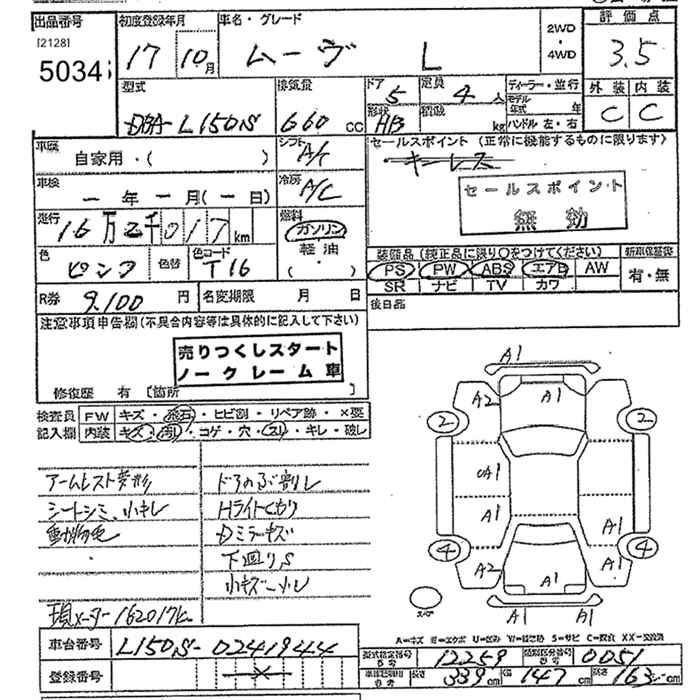 出品番号 初度登録年月 車名・グレード 2WD・4WD 評価点
[2128]
5034 17 10月 ムーヴ L 3.5
型式 排気量 ドア 5 定員 4人 ディーラー・並行 外装 内装
DBA-L150S 660cc 形状 HB 積載 kg モデル年式 年 ハンドル 左・右 C C
車歴 自家用・( ) シフト A/T セールスポイント (正常に機能するものに限ります)
キーレス
車検 ー年ー月(ー日) 冷房 A/C セールスポイント
無効
走行 16万2千017km 燃料 ガソリン 軽油 ( ・ )
装備品 (純正品に限り○をつけてください) 新車保証書
色 ピンク 色替 色コード T16 PS PW ABS エアB AW 有・無
SR ナビ TV カワ
R券 9,100円 名変期限 月 日 後日品
注意事項申告欄(不具合内容等は具体的に記入して下さい)
売りつくしスタート
ノークレーム車
修復歴 有 〔箇所
検査員 FW キズ・飛石・ヒビ割・リペア跡・×要
記入欄 内装 キズ・汚・コゲ・穴・スレ・キレ・破レ
アームレスト変形 ドアのぶ割レ
シートシミ、小キレ Hライトくもり
動物色 Dミラーキズ
下廻りS
小キズ・凹レ
現メーター162017k
A1
A2 A1 A1
2 2
UA1
A1 A1
4 4
A2 A1 A1
A1 A1
スペア
A=キズ E=エクボ U=凹み W=補修跡 S=サビ C=腐食 XX=交換済
車台番号 L150S-0241944 型式指定番号 参考 12259 類別区分番号 参考 0051
登録番号 長さ 339cm 幅 147cm 高さ 163cm